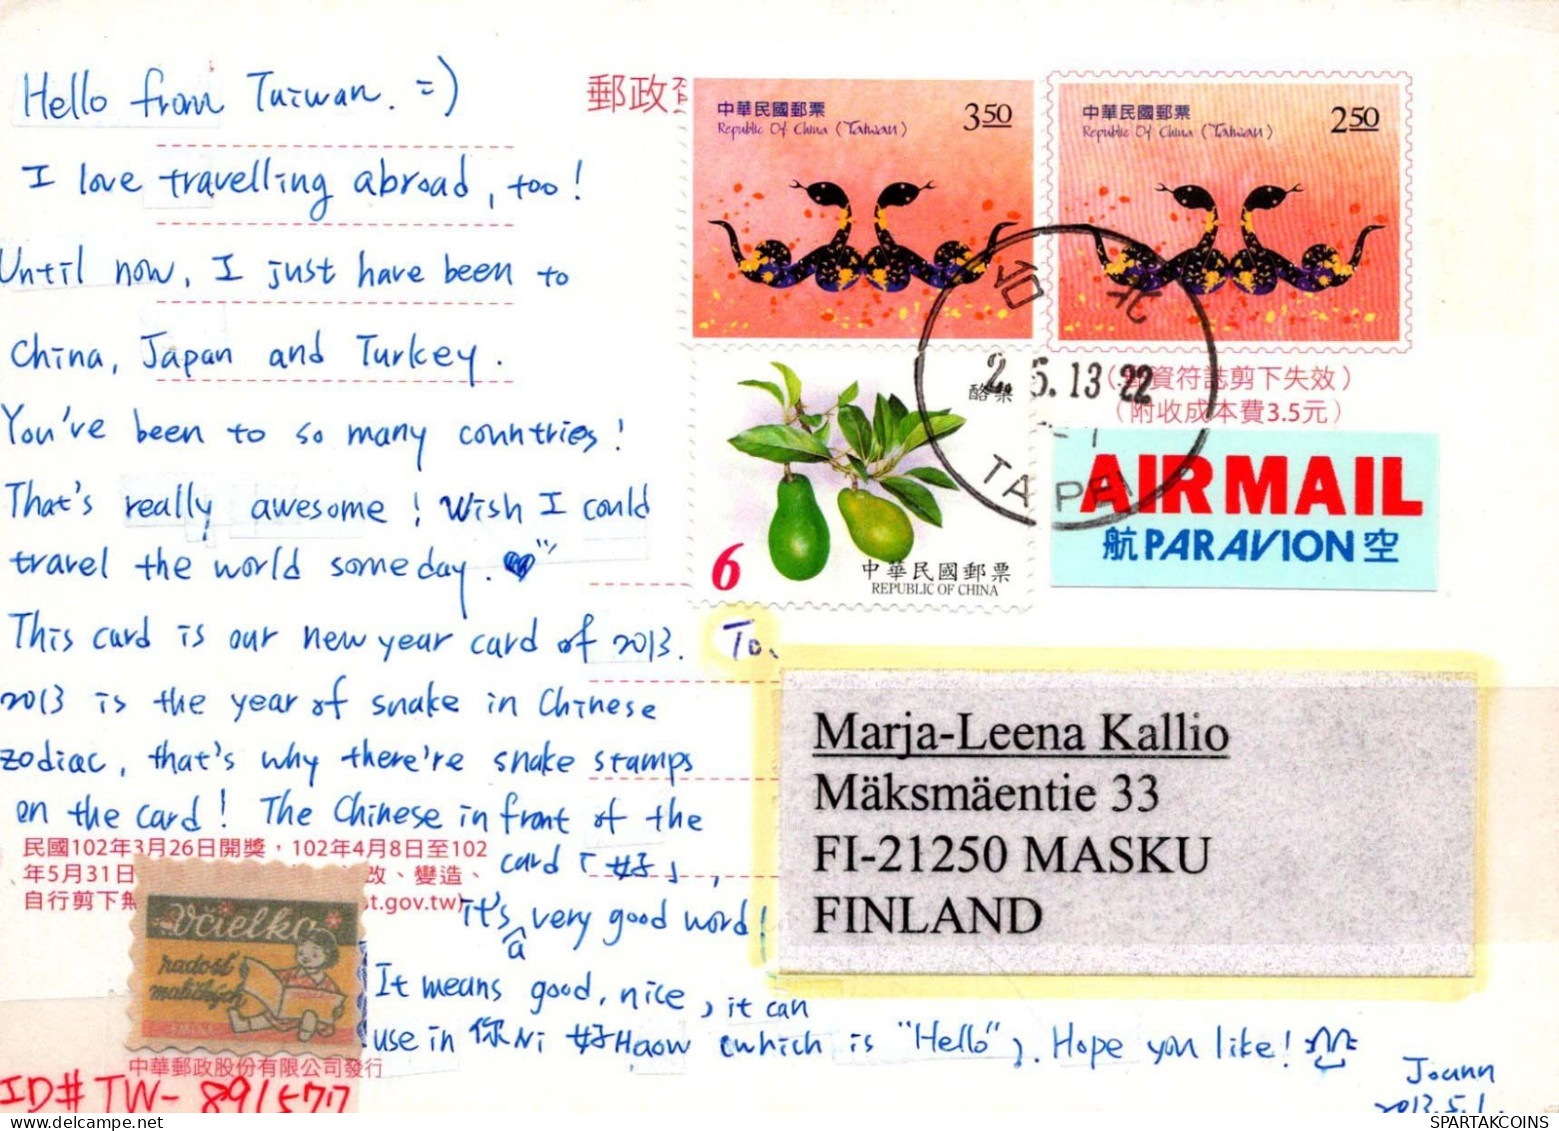 Hello from Taiwan. =)
I love travelling abroad, too!
Until now, I just have been to
China, Japan and Turkey.
You've been to so many countries!
That's really awesome! Wish I could
travel the world someday.
This card is our new year card of 2013.
2013 is the year of snake in Chinese
zodiac, that's why there're snake stamps
on the card! The Chinese in front of the
card「好」,
it's a very good word!
It means good, nice, it can
use in 你Ni 好Haow (which is "Hello"). Hope you like!
Joann
2013.5.1.
郵政
中華民國郵票
Republic Of China (Taiwan)
350
中華民國郵票
Republic Of China (Taiwan)
250
台北
2.5.13 22
TAIPEI
資符誌剪下失效）
（附收成本費3.5元）
酪梨
6
中華民國郵票
REPUBLIC OF CHINA
AIR MAIL
航 PAR AVION 空
To.
Marja-Leena Kallio
Mäksmäentie 33
FI-21250 MASKU
FINLAND
民國102年3月26日開獎，102年4月8日至102
年5月31日
改、變造、
自行剪下無
st.gov.tw)
Včielka
radosť
maličkých
中華郵政股份有限公司發行
ID# TW-891577
WWW.SPARTAKCOINS.COM